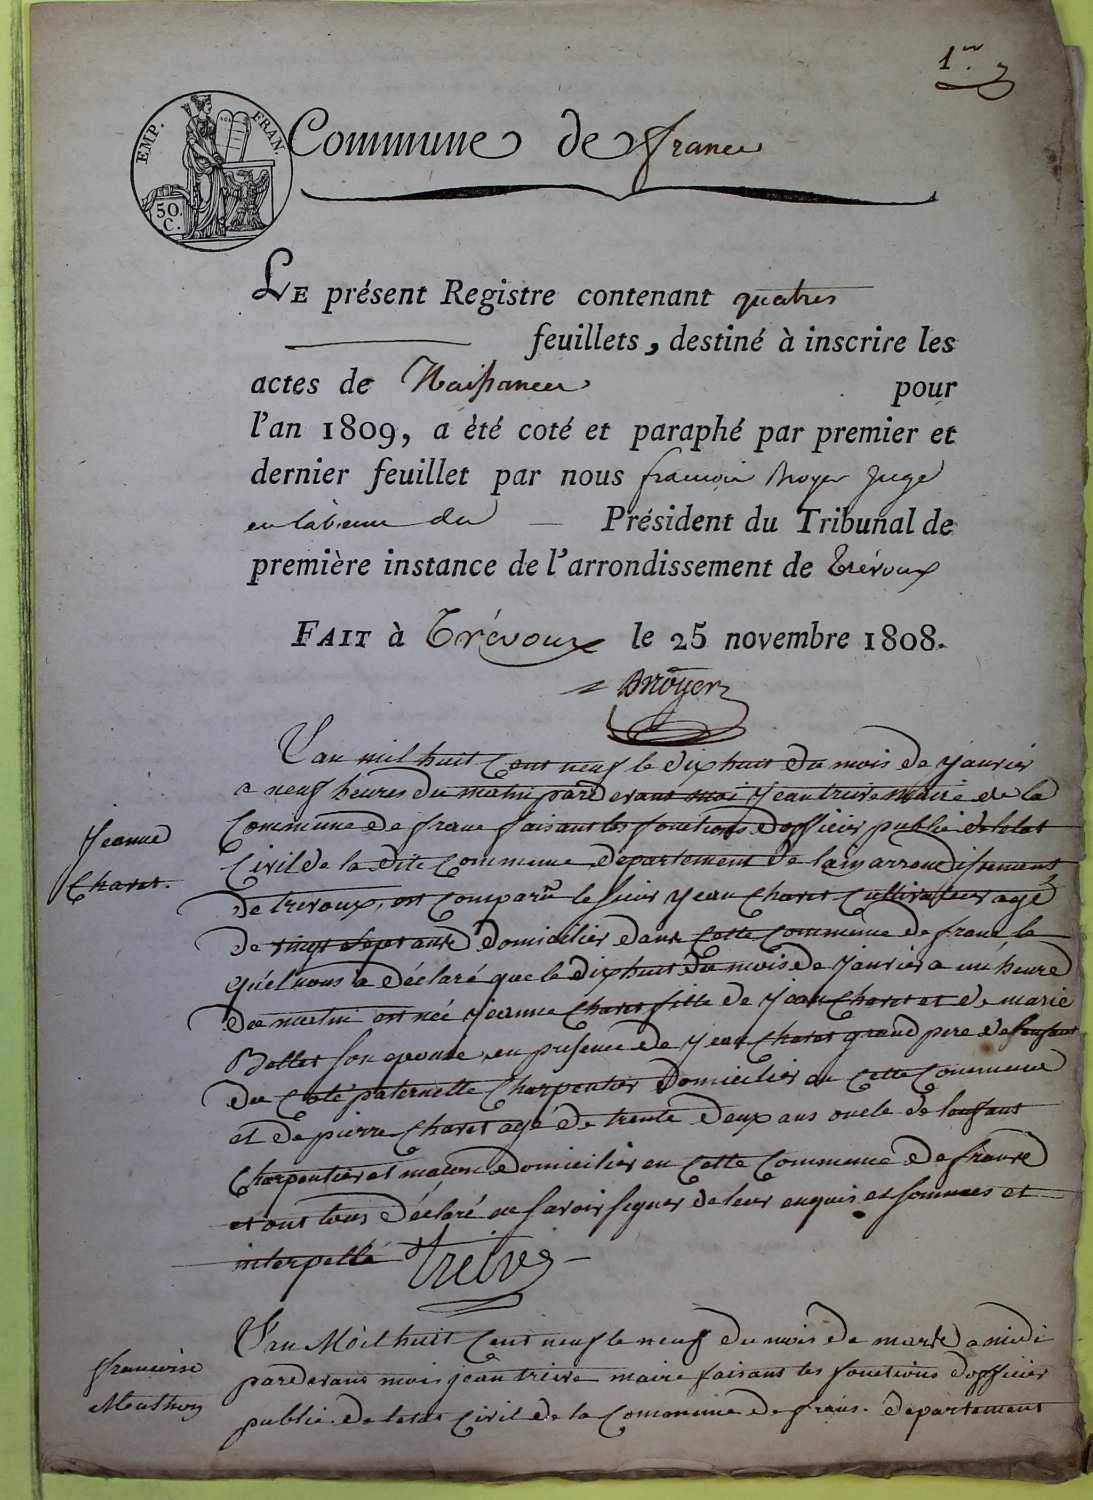 1er
EMP. FRAN.
50. C.
Commune de france
LE présent Registre contenant quatres
feuillets, destiné à inscrire les
actes de Naissances pour
l'an 1809, a èté coté et paraphé par premier et
dernier feuillet par nous francois Juge
en de Président du Tribunal de
première instance de l'arrondissement de Trévoux
FAIT à Trévoux le 25 novembre 1808.
L'an mil huit Cent neuf le dixhuit du mois de janvier
a neuf heures du matin pardevant moi jean treive maire de la
Jeanne
Charet.
Commune de franc faisant les fonctions d'officier public de letat
Civil de la dite Commune departement de lain arrondisement
de trevoux, est comparu le sieur jean Charet Cultivateur agé
de vingt sept ans domicilier dans Cette Commune de franc le
quel nous a déclaré que le dixhuit du mois de janvier a un heure
du matin est née jeanne Charet fille de jean Charet et de marie
Bollet son epouse, en presence de jean Charet grand pere de lenfant
du Coté paternelle Charpentier Domicilier en Cette Commune
et de pierre Charet agé de trente deux ans oncle de lenfant
Charpentier et maçon domicilier en Cette Commune de
et ont tous déclaré ne savoir signer de leur enquis et sommees et
interpellé Treive
L'an Mil huit Cent neuf le neuf du mois de mars a midi
francoise
pardevant mois jean treive maire faisant les fonctions d'officier
public de letat Civil de la Commune de frans. departement